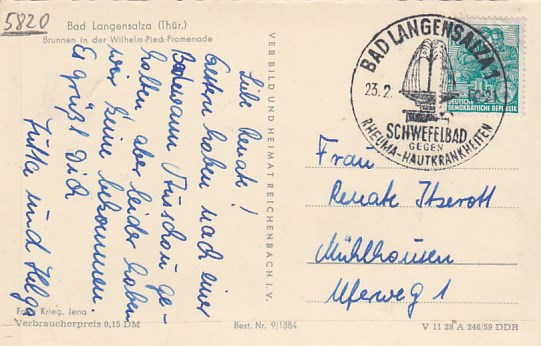 5820
Bad Langensalza (Thür.)
Brunnen in der Wilhelm-Pieck-Promenade
Liebe Renate!
Gestern haben nach einer
Badewann Ausschau ge-
halten aber leider haben
wir keine bekommen.
Es grüßt Dich
Jutta und Helga
Foto: Krieg, Jena
Verbraucherpreis 0,15 DM
VEB BILD UND HEIMAT REICHENBACH I. V.
Best. Nr. 9/1384
BAD LANGENSALZA 1
23.2.
SCHWEFELBAD
GEGEN
RHEUMA-HAUTKRANKHEITEN
DEUTSCHE
DEMOKRATISCHE REPUBLIK
Frau
Renate Itzerott
Mühlhausen
Uferweg 1
V 11 28 A 246/59 DDR